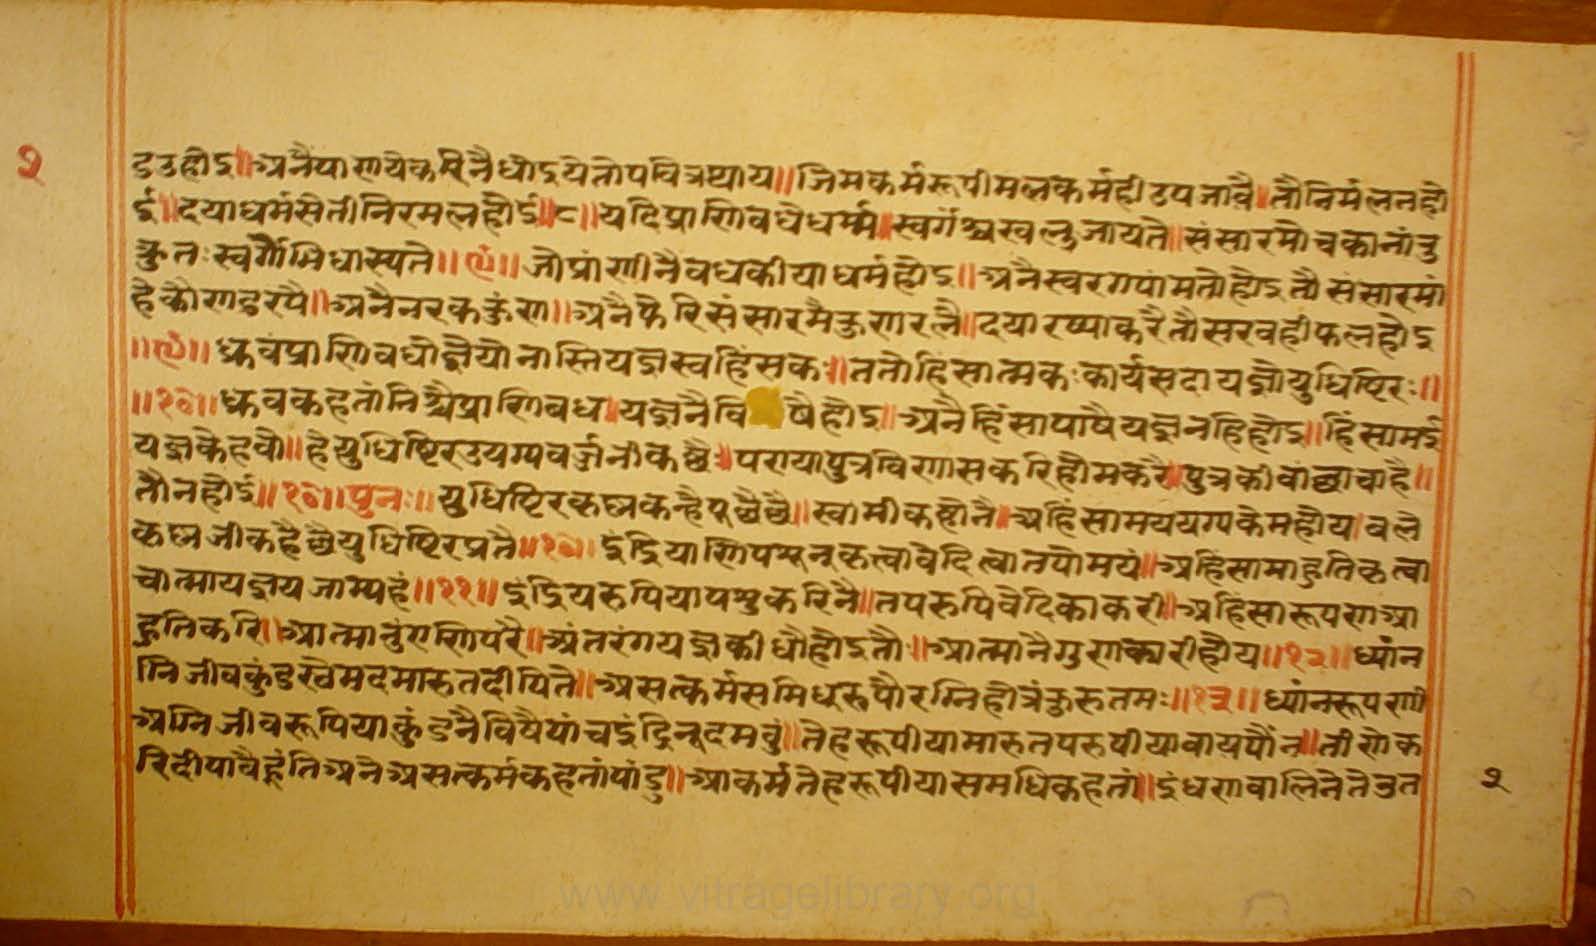 २
डउहोइ॥अनैपाणायेकरिनैधोइयेतोपवित्रथाय॥जिमकर्मरूपीमलकर्महीउपजावै॥तौनिर्मलनहो
ई॥दयाधर्मसेतीनिरमलहोई॥८॥यदिप्राणिवधेधर्म्म॥स्वर्गश्चखलुजायते॥संसारमोचकानांतु
कुतःस्वर्गोभिधास्यते॥९॥जोप्रांणीनैवधकीयाधर्महोइ॥अनैस्वरगपांमतोहोइतौसंसारमां
हेकौणडरपै॥अनैनरककुंण॥अनैफेरिसंसारमैकुणरलै॥दयारष्याकरैतौसरवहीफलहोइ
॥९॥ध्रुवंप्राणिवधोज्ञेयोनास्तियज्ञस्वहिंसकः॥ततोहिंसात्मकःकार्यसदायज्ञोयुधिष्टिरः॥
॥१०॥ध्रुवकहतांनिश्चैप्राणिबध॥यज्ञनैवि षैहोइ॥अनैहिंसापाषैयज्ञनहिहोइ॥हिंसामई
यज्ञकेहवो॥हेयुधिष्टिरउयग्यवर्जनीकछै॥परायापुत्रविणासकरिहोमकरै॥पुत्रकीवांछाचाहै॥
तौनहोई॥१०॥पुनः॥युधिष्टिरकृष्नकन्हैपूछैछै॥स्वामीकहौनै॥अहिंसामययग्यकेमहौय।वले
कृष्नजीकहैछैयुधिष्टिरप्रतै॥१०॥इंद्रियाणिपशूनूकृत्वावेदिंत्वातपोमयं॥अहिंसामाहुतिंकृत्वा
चात्मायज्ञयजाम्यहं॥११॥इंद्रियरुपियापशुकरिनै॥तपरुपिवेदिकाकरी॥अहिंसारूपणआ
हुतिकरि॥आत्मानुंएणिपरै॥अंतरंगयज्ञकीधौहोइतौ॥आत्मानैगुणकारीहौय॥१२॥ध्यांन
ग्निजीवकुंडस्थेमदमारुतदीपिते॥असत्कर्मसमिधूरुपौरग्निहोत्रंकुरुतमः॥१३॥ध्यांनरूपणी
अग्निजीवरूपियाकुंडनैविषैयांचइंद्रिनूदमवुं॥तेहरूपीयामारुतपरुपीयावायपौंन॥तीणेक
रिदीपावैहूंतिअनेअसत्कर्मकहेतांपांडु॥आकर्मतेहरूपीयासमधिकहतां॥इंधणवालिनेतेउत
२
www.vitragelibrary.org